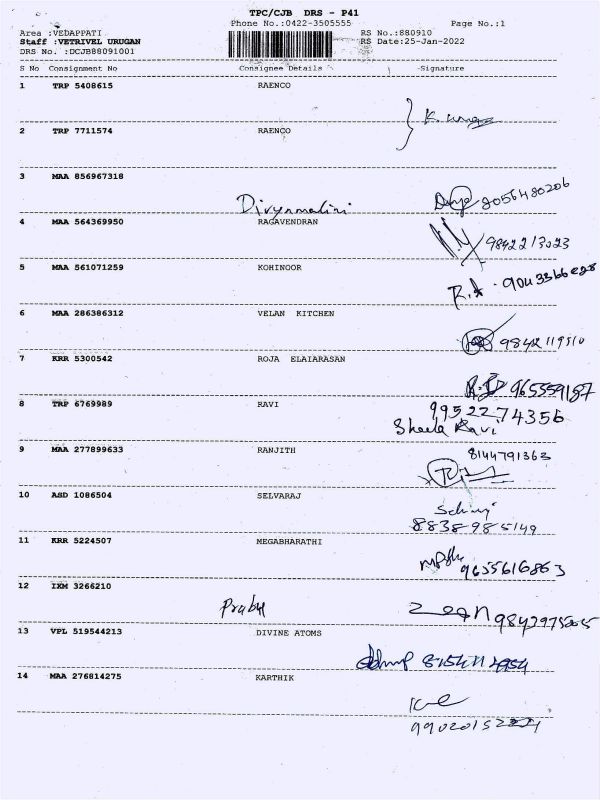 TPC/CJB DRS - P41
Phone No.:0422-3505555 Page No.:1
Area :VEDAPPATI RS No.:880910
Staff :VETRIVEL URUGAN RS Date:25-Jan-2022
DRS No. :DCJB88091001
S No Consignment No Consignee Details Signature
1 TRP 5408615 RAENCO
2 TRP 7711574 RAENCO
3 MAA 856967318
Divyamalini 8056480206
4 MAA 564369950 RAGAVENDRAN
9842213023
5 MAA 561071259 KOHINOOR
6 MAA 286386312 VELAN KITCHEN
9842119510
7 KRR 5300542 ROJA ELAIARASAN
965559187
8 TRP 6769989 RAVI
9952274356
Sheela Ravi
9 MAA 277899633 RANJITH
8144791363
10 ASD 1086504 SELVARAJ
8838985149
11 KRR 5224507 MEGABHARATHI
9655616863
12 IXM 3266210
Prabu
13 VPL 519544213 DIVINE ATOMS
14 MAA 276814275 KARTHIK